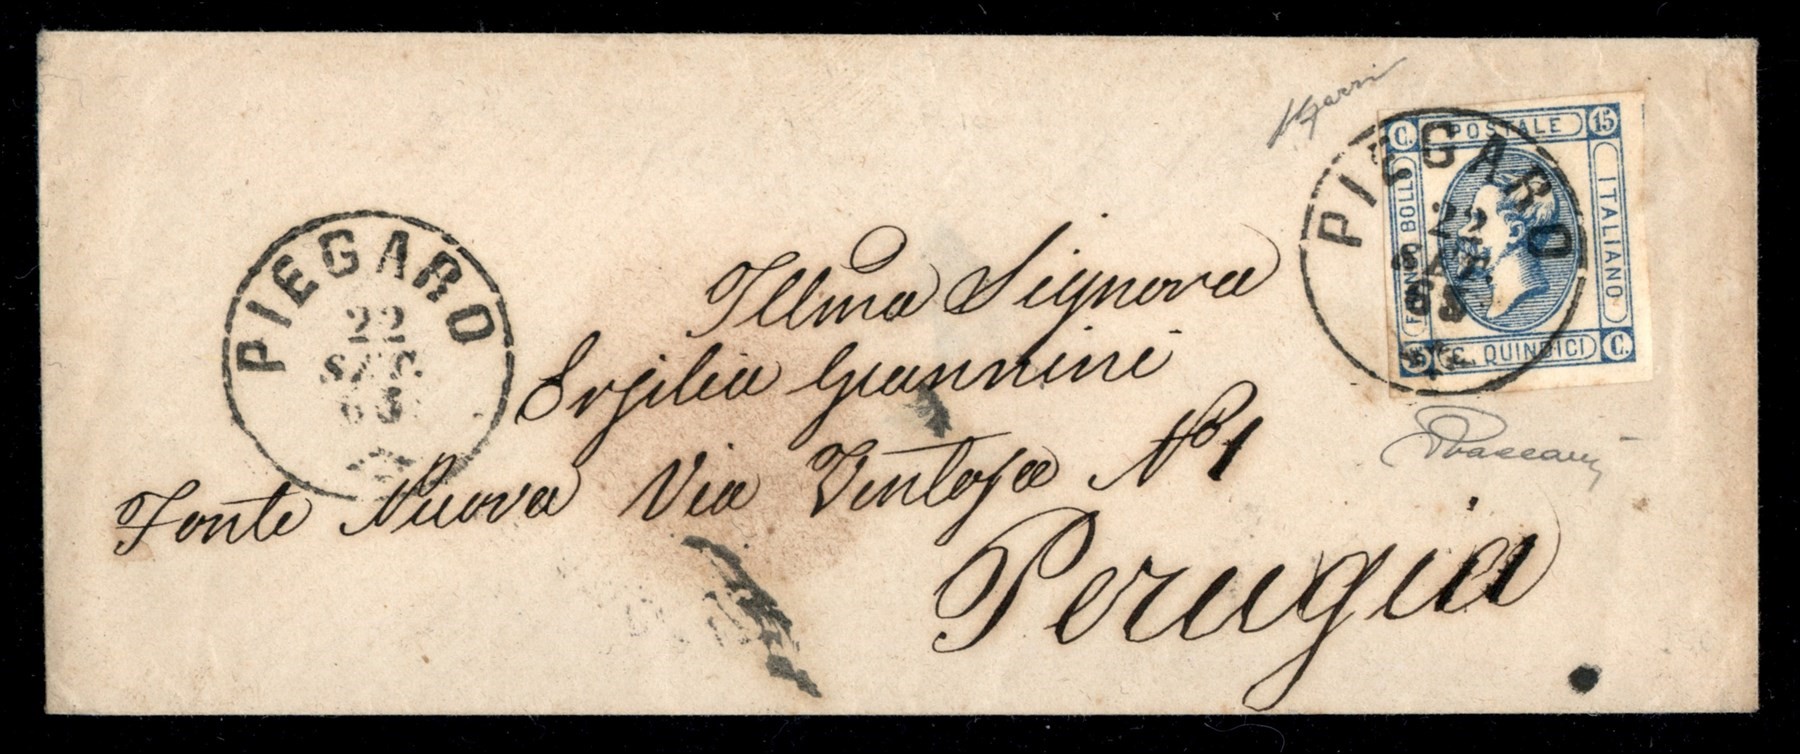 PIEGARO
22
SET.
63
C. POSTALE 15
FRANCO BOLLO
ITALIANO
15 C. QUINDICI C.
PIEGARO
22
SET
63
Illma Signora
Ersilia Giannini
Fonte Nuova Via Ventosa No 1
Perugia